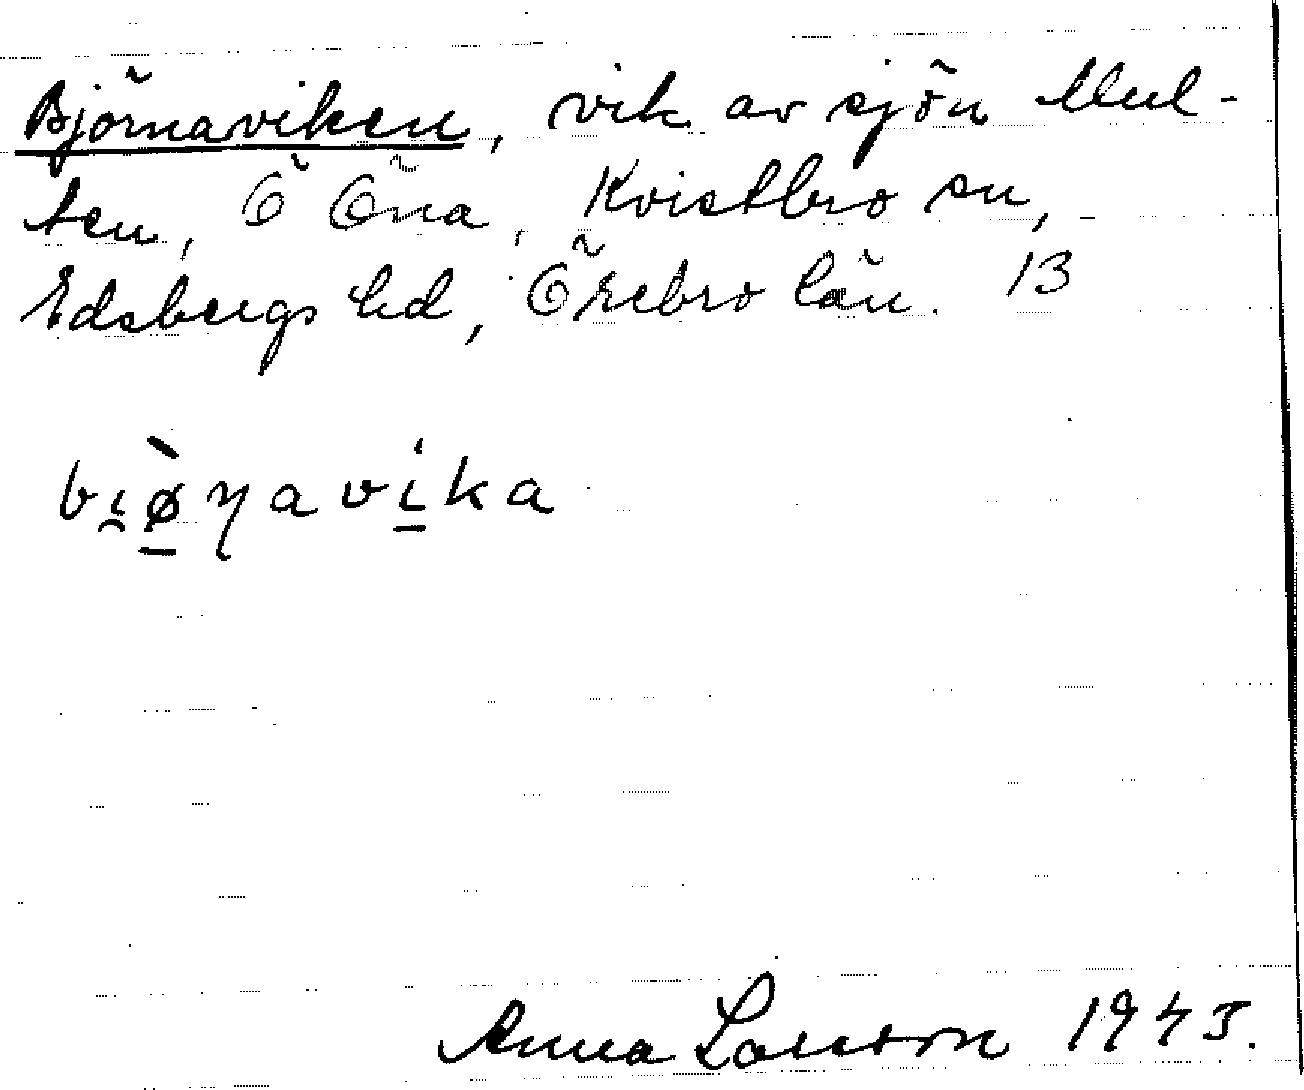 Björnaviken, vik av sjön Mul-
ten, Ö Öna, Kvistbro sn,
Edsbergs hd, Örebro län. 13
bı̯ø̀ɳavíka
Anna Larsson 1943.